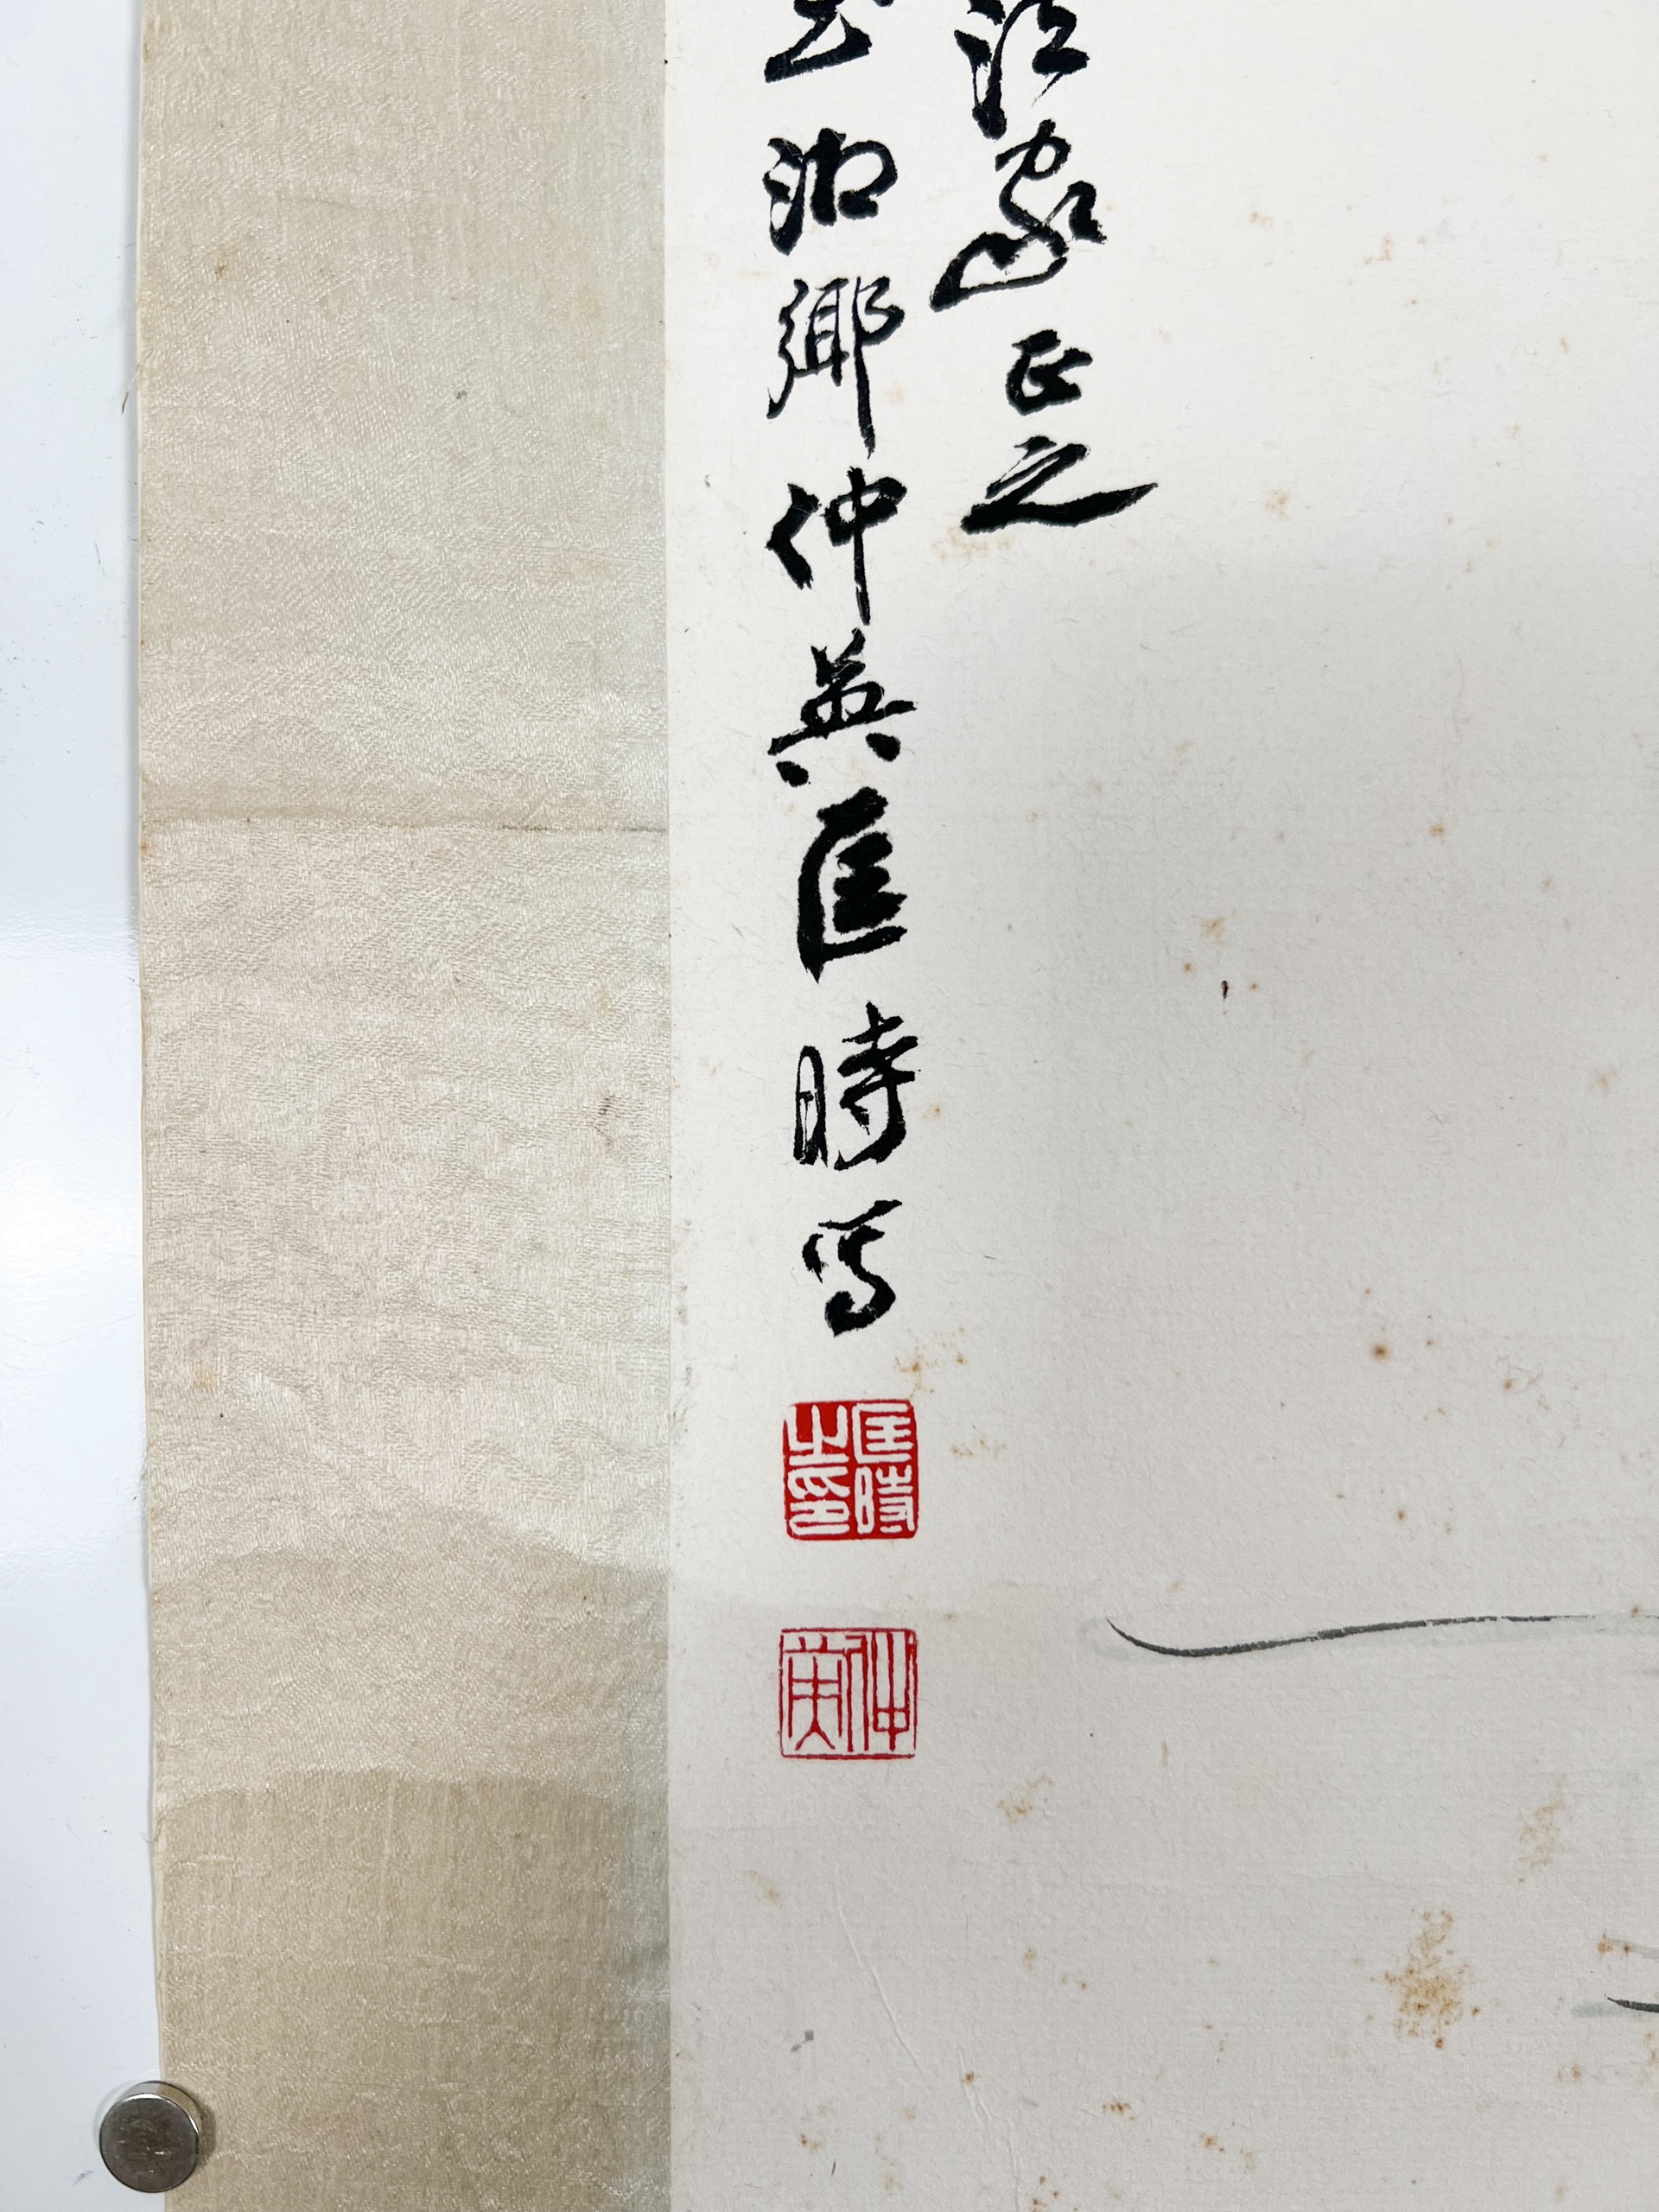 法家正之
湘鄉仲英匡時寫
匡時之印
仲英